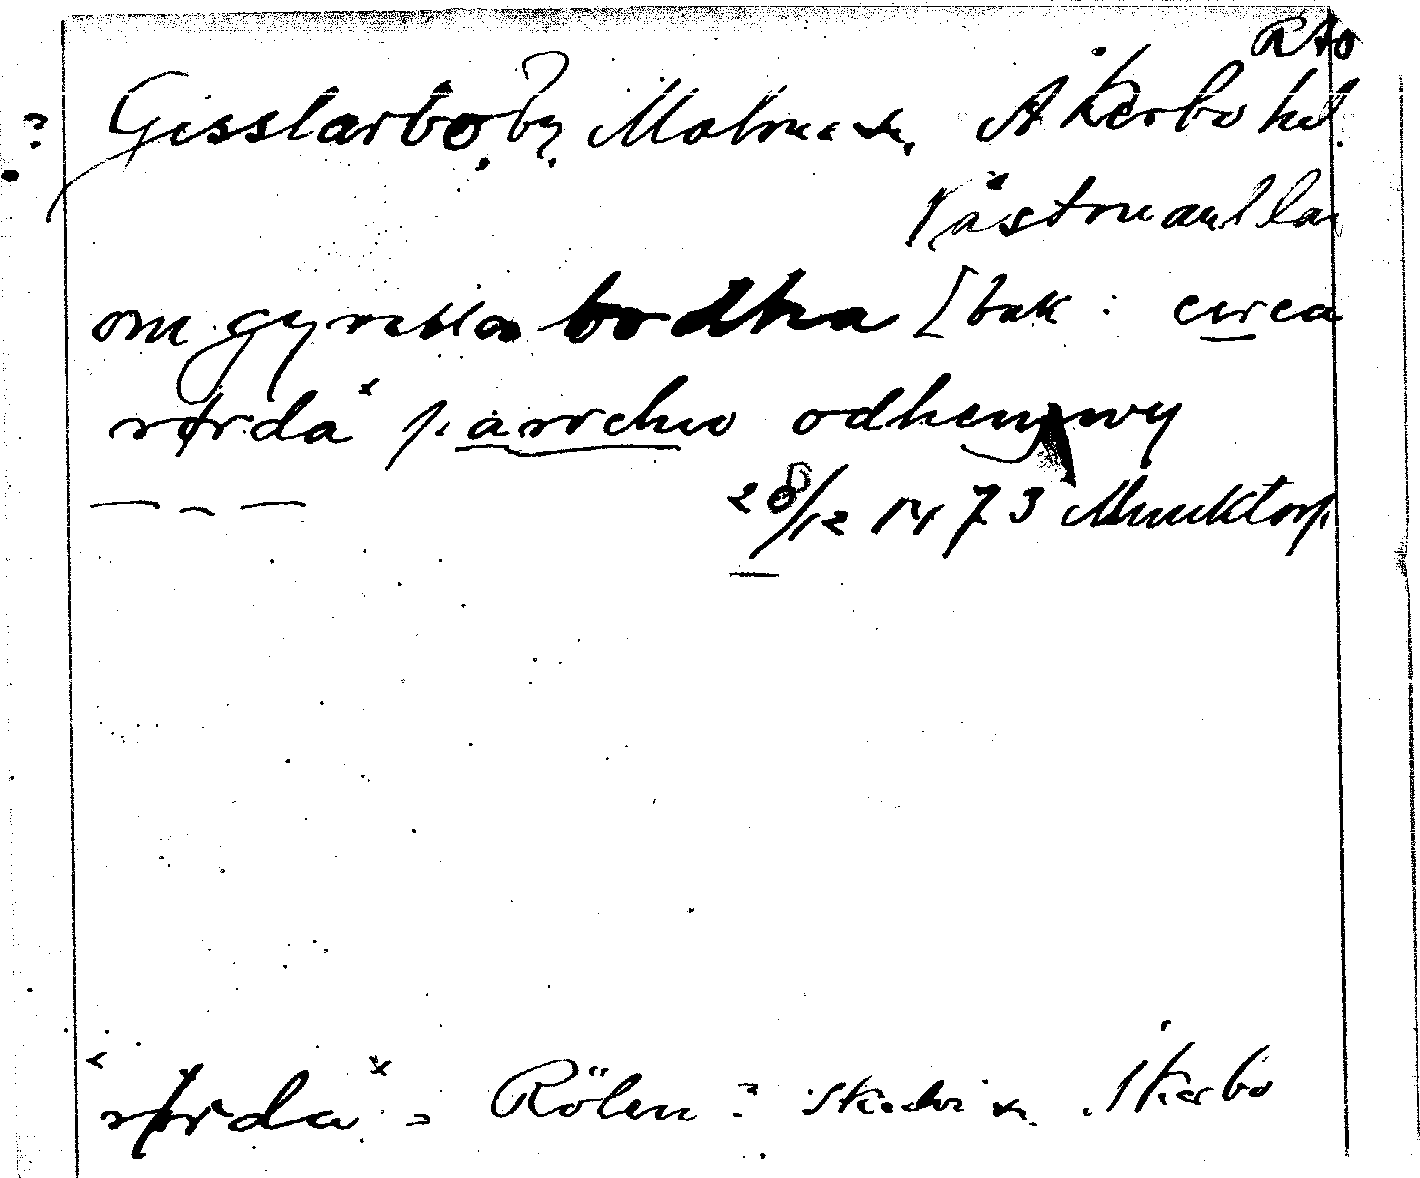 RAO
? Gisslarbo, by. Malma sn, Åkerbo hd.
Västmanl la
om gyrislla bodha [bak: circa
rørda x parrchio odhenswy
28/12 1473 Munktorp
rørda x = Rölen ? Skedvi sn. Åkerbo